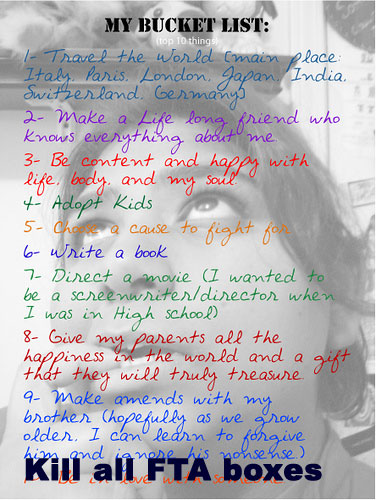 MY BUCKET LIST:
(top 10 things)
1- Travel the world (main place:
Italy, Paris, London, Japan, India,
Switzerland, Germany)
2- Make a Life long friend who
knows everything about me
3- Be content and happy with
life, body, and my soul
4- Adopt Kids
5- Choose a cause to fight for
6- Write a book
7- Direct a movie (I wanted to
be a screenwriter/director when
I was in High school)
8- Give my parents all the
happiness in the world and a gift
that they will truly treasure.
9- Make amends with my
brother (hopefully as we grow
older, I can learn to forgive
him and ignore his nonsense.)
Be in love with someone
Kill all FTA boxes